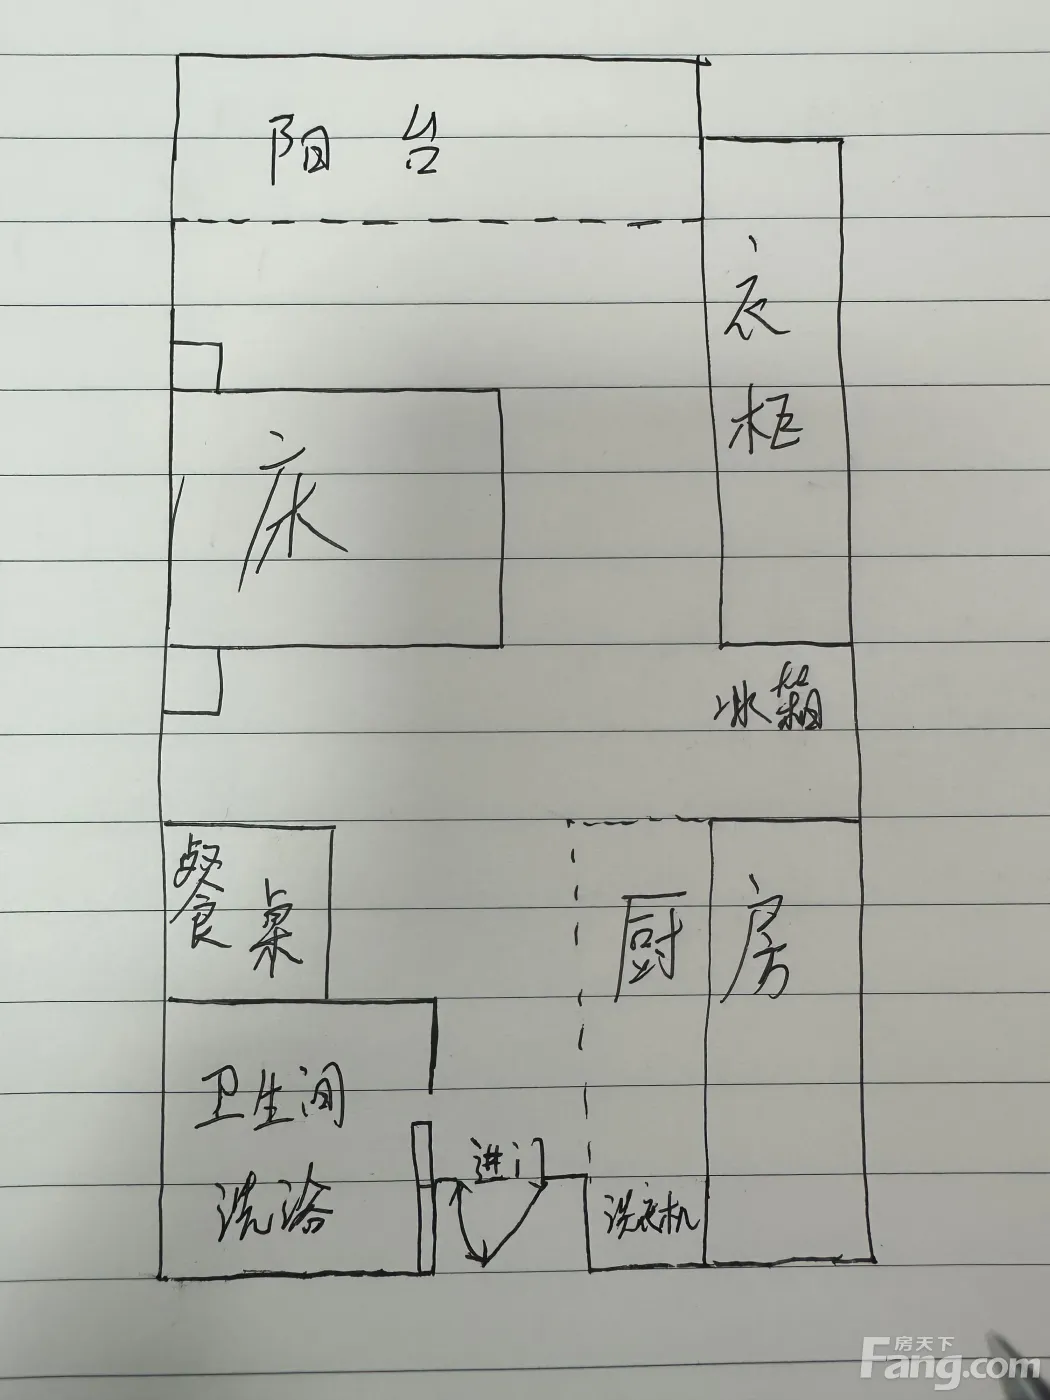 阳台
衣柜
床
冰箱
餐桌
厨房
卫生间
洗浴
进门
洗衣机
房天下
Fang.com